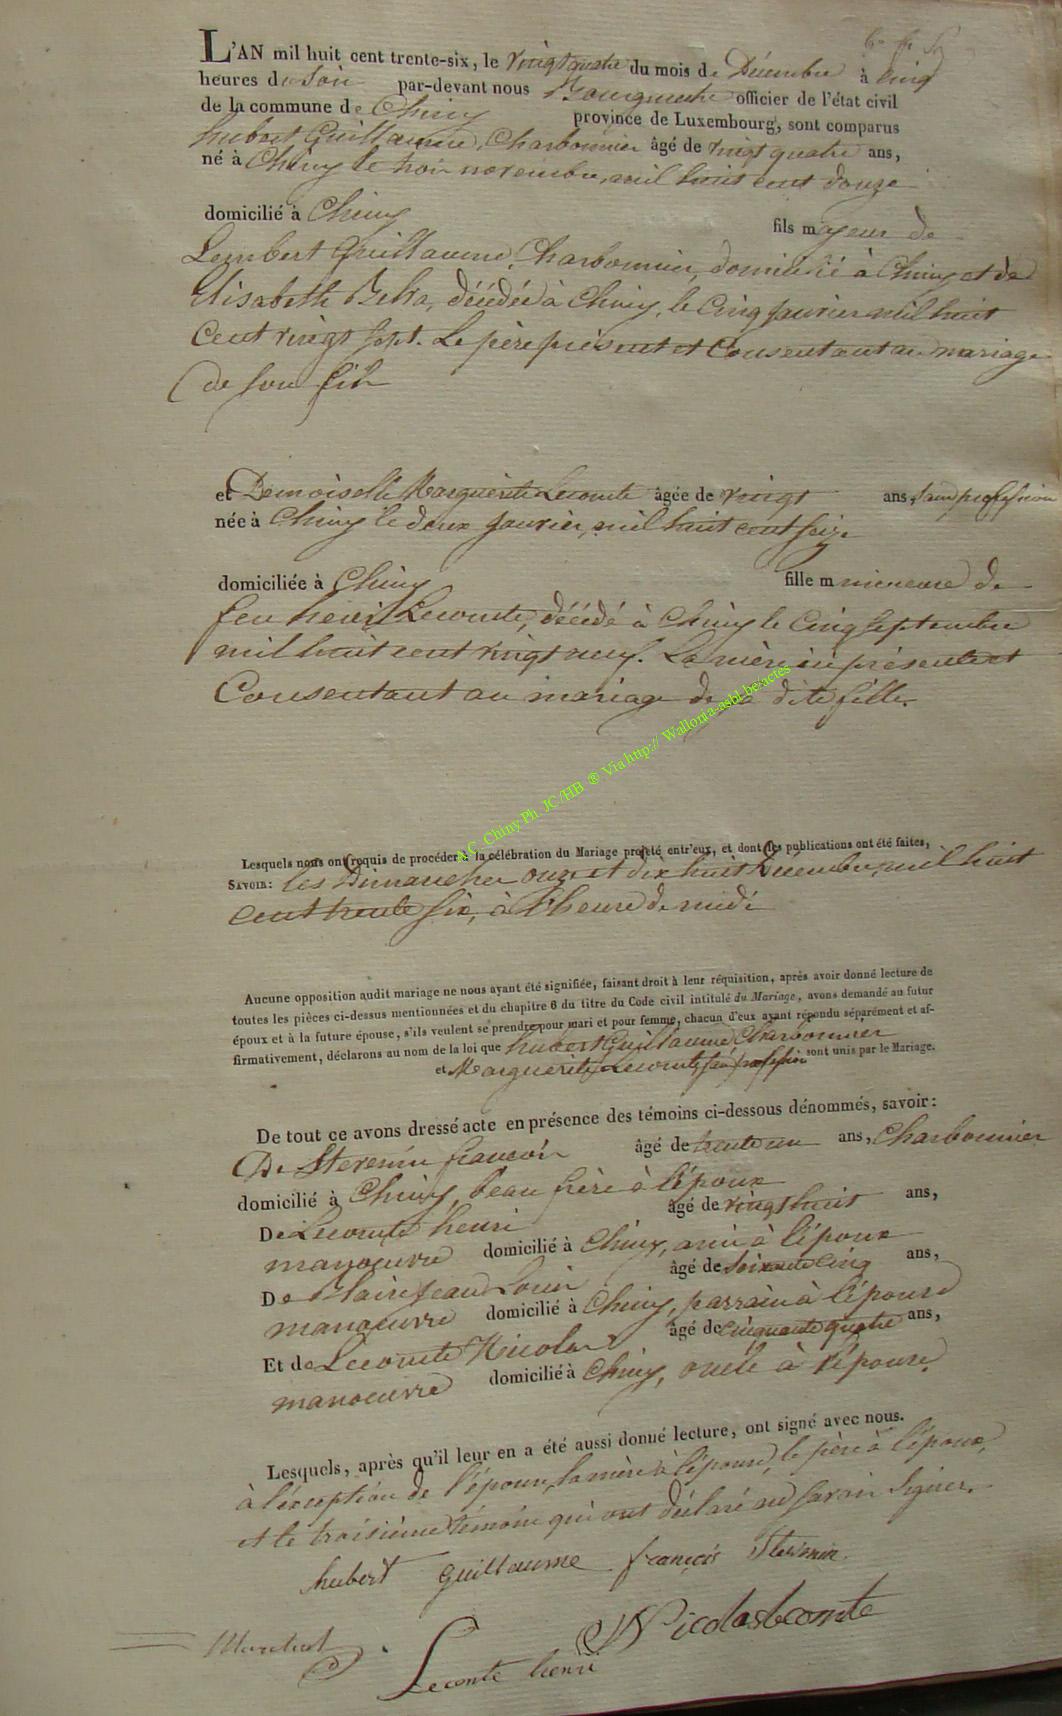 L'AN mil huit cent trente-six, le vingt quatre du mois de Décembre à cinq
heures du soir par-devant nous officier de l'état civil
de la commune de Chiny province de Luxembourg, sont comparus
hubert Guillaume, Charbonnier âgé de vingt quatre ans,
né à Chiny le trois novembre, mil huit cent douze
domicilié à Chiny fils majeur de
Lambert Guillaume, Charbonnier, domicilié à Chiny et de
Elisabeth décédée à Chiny, le Cinq janvier mil huit
Cent vingt sept. Le père présent et Consentant au mariage
de son fils
et Demoiselle Marguerite Lecomte âgée de vingt ans, sans profession
née à Chiny le deux janvier, mil huit cent seize
domiciliée à Chiny fille mineure de
feu henri Lecomte, décédé à Chiny le Cinq septembre
mil huit cent vingt neuf. La mère ici présente et
Consentant au mariage de sa dite fille.
A.C. Chiny Ph. JC/HB ® Via http:// Wallonia-asbl.be/actes
Lesquels nous ont requis de procéder à la célébration du Mariage projeté entr'eux, et dont les publications ont été faites,
SAVOIR: les Dimanches onze et dix huit Décembre, mil huit
cent trente six, à l'heure de midi
Aucune opposition audit mariage ne nous ayant été signifiée, faisant droit à leur réquisition, après avoir donné lecture de
toutes les pièces ci-dessus mentionnées et du chapitre 6 du titre du Code civil intitulé du Mariage, avons demandé au futur
époux et à la future épouse, s'ils veulent se prendre pour mari et pour femme, chacun d'eux ayant répondu séparément et af-
firmativement, déclarons au nom de la loi que hubert Guillaume Charbonnier
et Marguerite Lecomte, sans profession sont unis par le Mariage.
De tout ce avons dressé acte en présence des témoins ci-dessous dénommés, savoir:
De françois âgé de trente un ans, Charbonnier
domicilié à Chiny, beau frère à l'époux
De Lecomte henri âgé de vingt huit ans,
manoeuvre domicilié à Chiny, ami à l'époux
De Jean Louis âgé de soixante cinq ans,
manoeuvre domicilié à Chiny, parrain à l'épouse
Et de Lecomte Nicolas âgé de cinquante quatre ans,
manoeuvre domicilié à Chiny, oncle à l'épouse.
Lesquels, après qu'il leur en a été aussi donné lecture, ont signé avec nous.
à l'exception de l'épouse, la mère à l'épouse, le père à l'époux,
et le troisième témoin qui ont déclaré ne savoir signer.
hubert Guillaume françois
Nicolas lecomte
Leconte henri